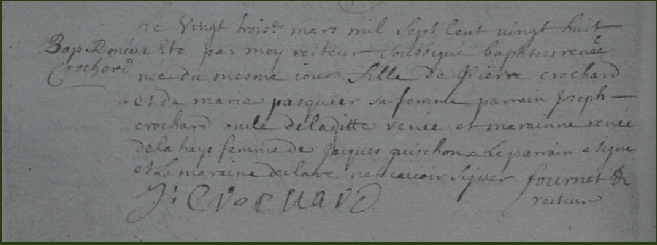 Le vingt trois.e mars mil sept cent vingt huit
Bap. Renée
Crochard
a Eté par moy recteur soussigné baptisée renée
née du mesme iour fille de pierre crochard
et de marie pasquier sa femme parrain Joseph
crochard oncle de laditte renée et marainne renée
de la haye femme de Jacques le parrain a signé
et la maraine declare ne scavoir signer fournet
recteur
J: Crochard